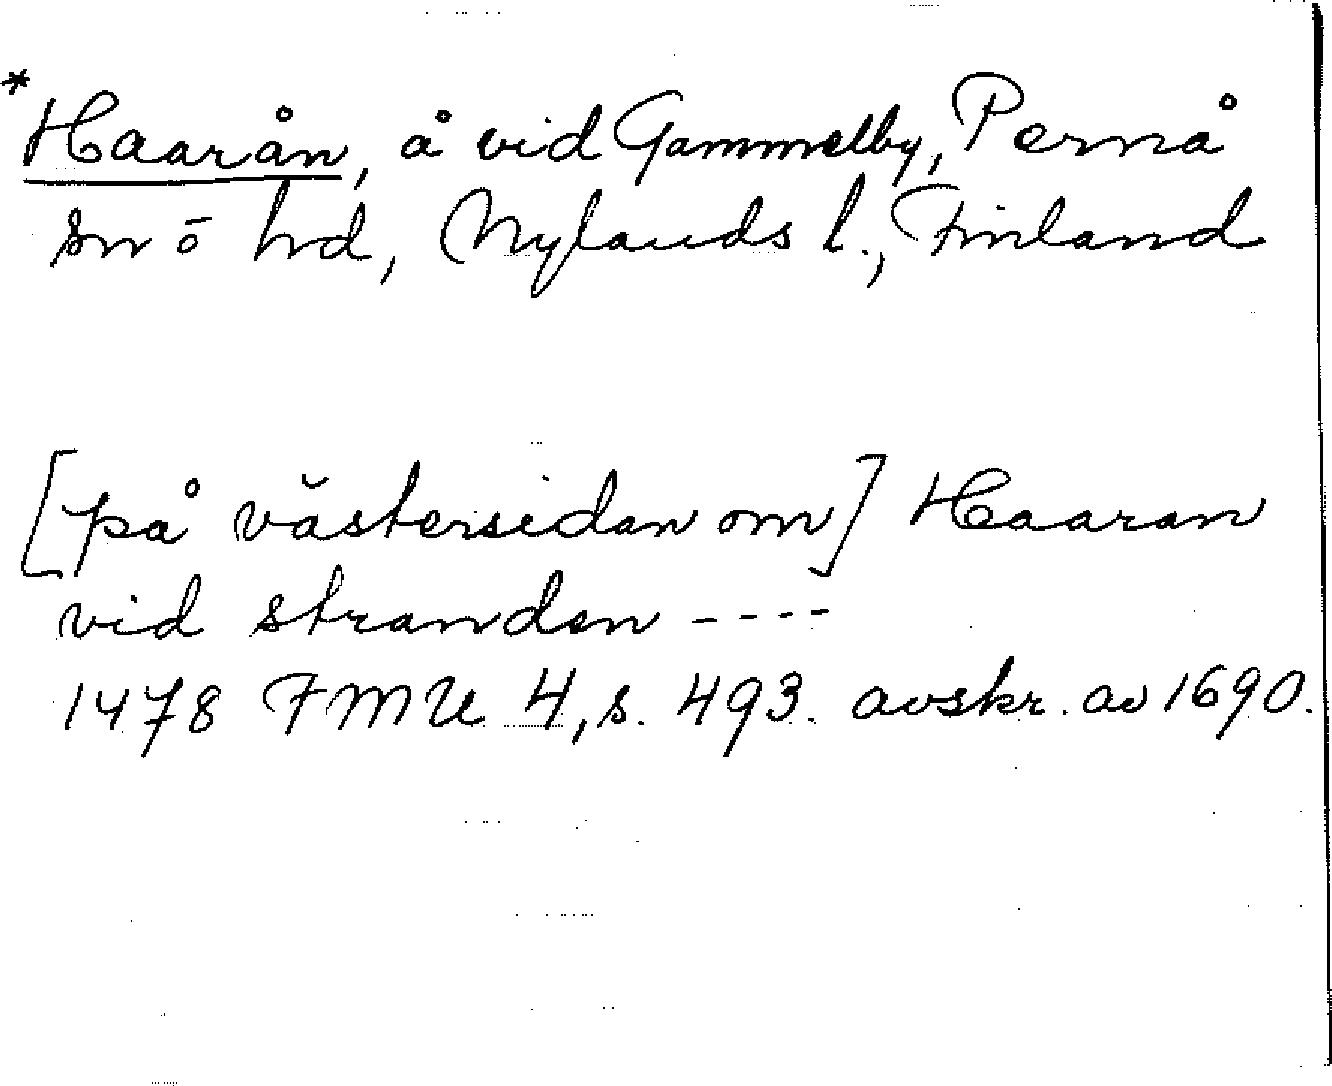 *Haarån, å vid Gammelby, Pernå
sn ō hd, Nylands l., Finland
[på västersidan om] Haaran
vid stranden ----
1478 FMU 4, s. 493. avskr. av 1690.